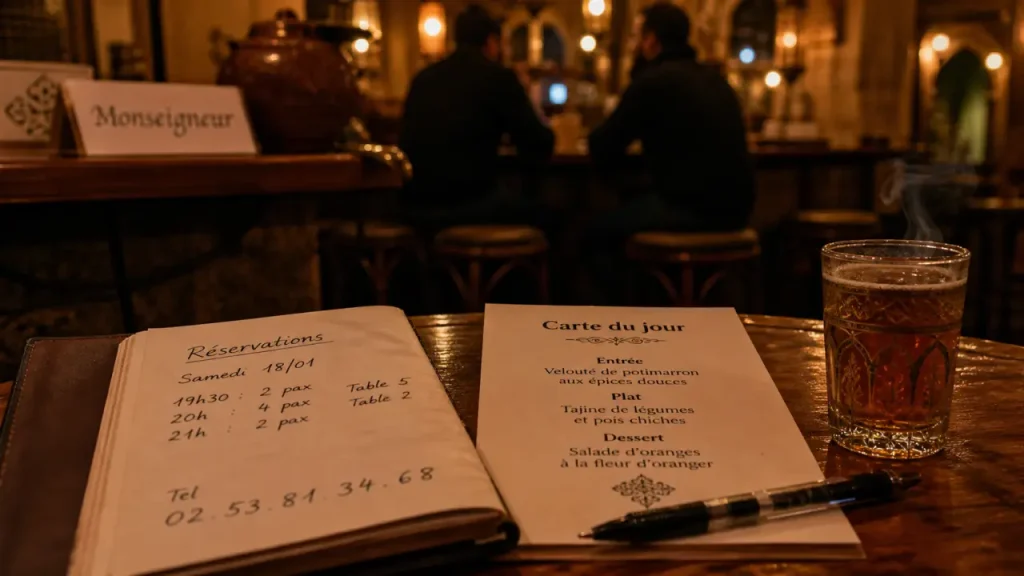 Monseigneur
Réservations
Samedi 18/01
19h30 : 2 pax Table 5
20h : 4 pax Table 2
21h : 2 pax
Tel
02.53.81.34.68
Carte du jour
Entrée
Velouté de potimarron
aux épices douces
Plat
Tajine de légumes
et pois chiches
Dessert
Salade d'oranges
à la fleur d'oranger